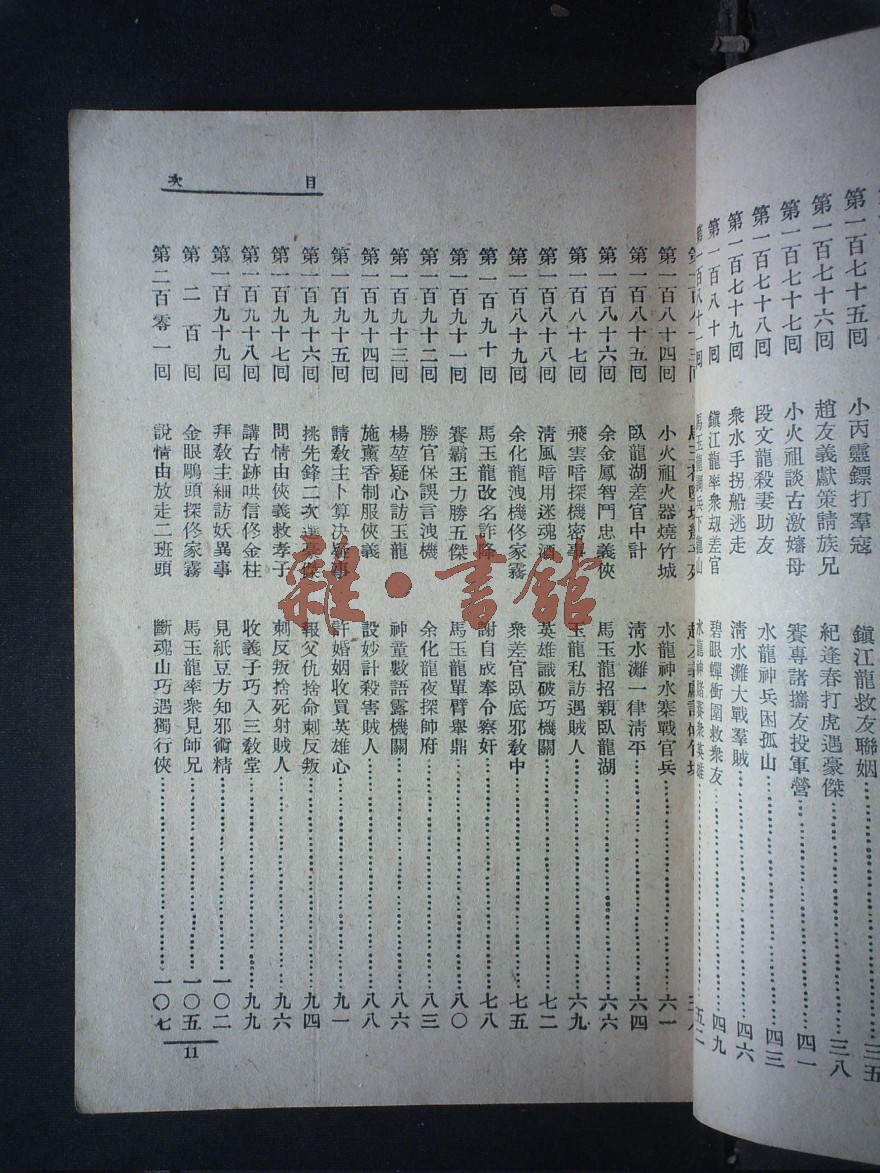 第一百七十五回 小丙靈鏢打羣寇 鎮江龍救友聯姻 三五
第一百七十六回 趙友義獻策請族兄 紀逢春打虎遇豪傑 三八
第一百七十七回 小火祖談古激嬸母 賽專諸攜友投軍營 四一
第一百七十八回 段文龍殺妻助友 水龍神兵困孤山 四三
第一百七十九回 衆水手拐船逃走 淸水灘大戰羣賊 四六
第一百八十回 鎮江龍率衆刼差官 碧眼蟬衝圍救衆友 四九
第一百八十一回 馬玉龍調兵下龍山 五二
目次
第一百八十四回 小火祖火器燒竹城 水龍神水寨戰官兵 六一
第一百八十五回 臥龍湖差官中計 淸水灘一律淸平 六四
第一百八十六回 余金鳳智鬥忠義俠 馬玉龍招親臥龍湖 六六
第一百八十七回 飛雲暗探機密事 玉龍私訪遇賊人 六九
第一百八十八回 淸風暗用迷魂酒 英雄識破巧機關 七二
第一百八十九回 余化龍洩機佟家霧 衆差官臥底邪敎中 七五
第一百九十回 馬玉龍改名詐降 謝自成奉令察奸 七八
第一百九十一回 賽霸王力勝五傑 馬玉龍單臂舉鼎 八〇
第一百九十二回 勝官保誤言洩機 余化龍夜探帥府 八三
第一百九十三回 楊堃疑心訪玉龍 神童數語露機關 八六
第一百九十四回 施薰香制服俠義 設妙計殺害賊人 八八
第一百九十五回 請敎主卜算決疑事 許婚姻收買英雄心 九一
第一百九十六回 挑先鋒二次選豪傑 報父仇捨命刺反叛 九四
第一百九十七回 問情由俠義救孝子 刺反叛捨死射賊人 九六
第一百九十八回 講古跡哄信佟金柱 收義子巧入三敎堂 九九
第一百九十九回 拜敎主細訪妖異事 見紙豆方知邪術精 一〇二
第二百回 金眼鵰頭探佟家霧 馬玉龍率衆見師兄 一〇五
第二百零一回 說情由放走二班頭 斷魂山巧遇獨行俠 一〇七
11
雜·書館